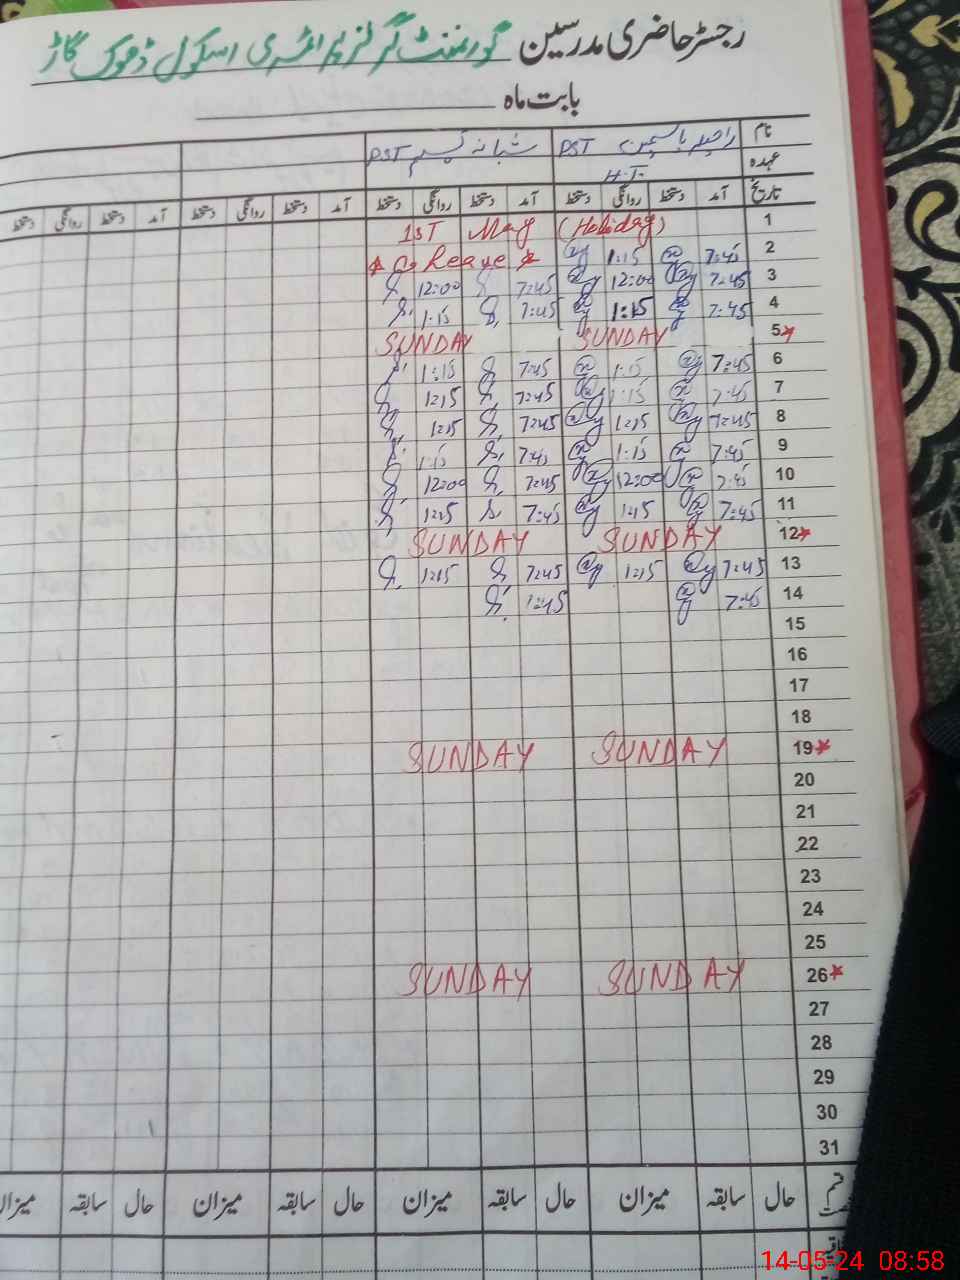 رجسٹر حاضری مدرسین گورنمنٹ گرلز پرائمری اسکول ڈھوک گاڑ
بابت ماہ
نام راحیلہ یاسمین PST شبانہ نسیم PST
عہدہ H.T.
تاریخ آمد دستخط روانگی دستخط آمد دستخط روانگی دستخط آمد دستخط روانگی دستخط آمد دستخط روانگی دستخط
1 1ST May (Holiday)
2 7:45 1:15 Leave
3 7:45 12:00 7:45 12:00
4 7:45 1:15 7:45 1:15
5 SUNDAY SUNDAY
6 7:45 1:15 7:45 1:15
7 7:45 1:15 7:45 1:15
8 7:45 1:15 7:45 1:15
9 7:45 1:15 7:45 1:15
10 7:45 12:00 7:45 12:00
11 7:45 1:15 7:45 1:15
12 SUNDAY SUNDAY
13 7:45 1:15 7:45 1:15
14 7:45 1:45
15
16
17
18
19 SUNDAY SUNDAY
20
21
22
23
24
25
26 SUNDAY SUNDAY
27
28
29
30
31
حال سابقہ میزان حال سابقہ میزان حال سابقہ میزان حال سابقہ میزان
14-05-24 08:58